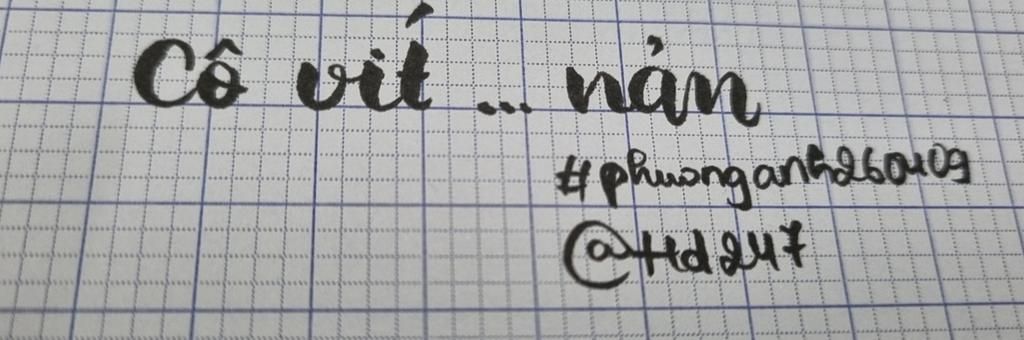 Cô vít ... nản
#phuonganh260409
@Hd247